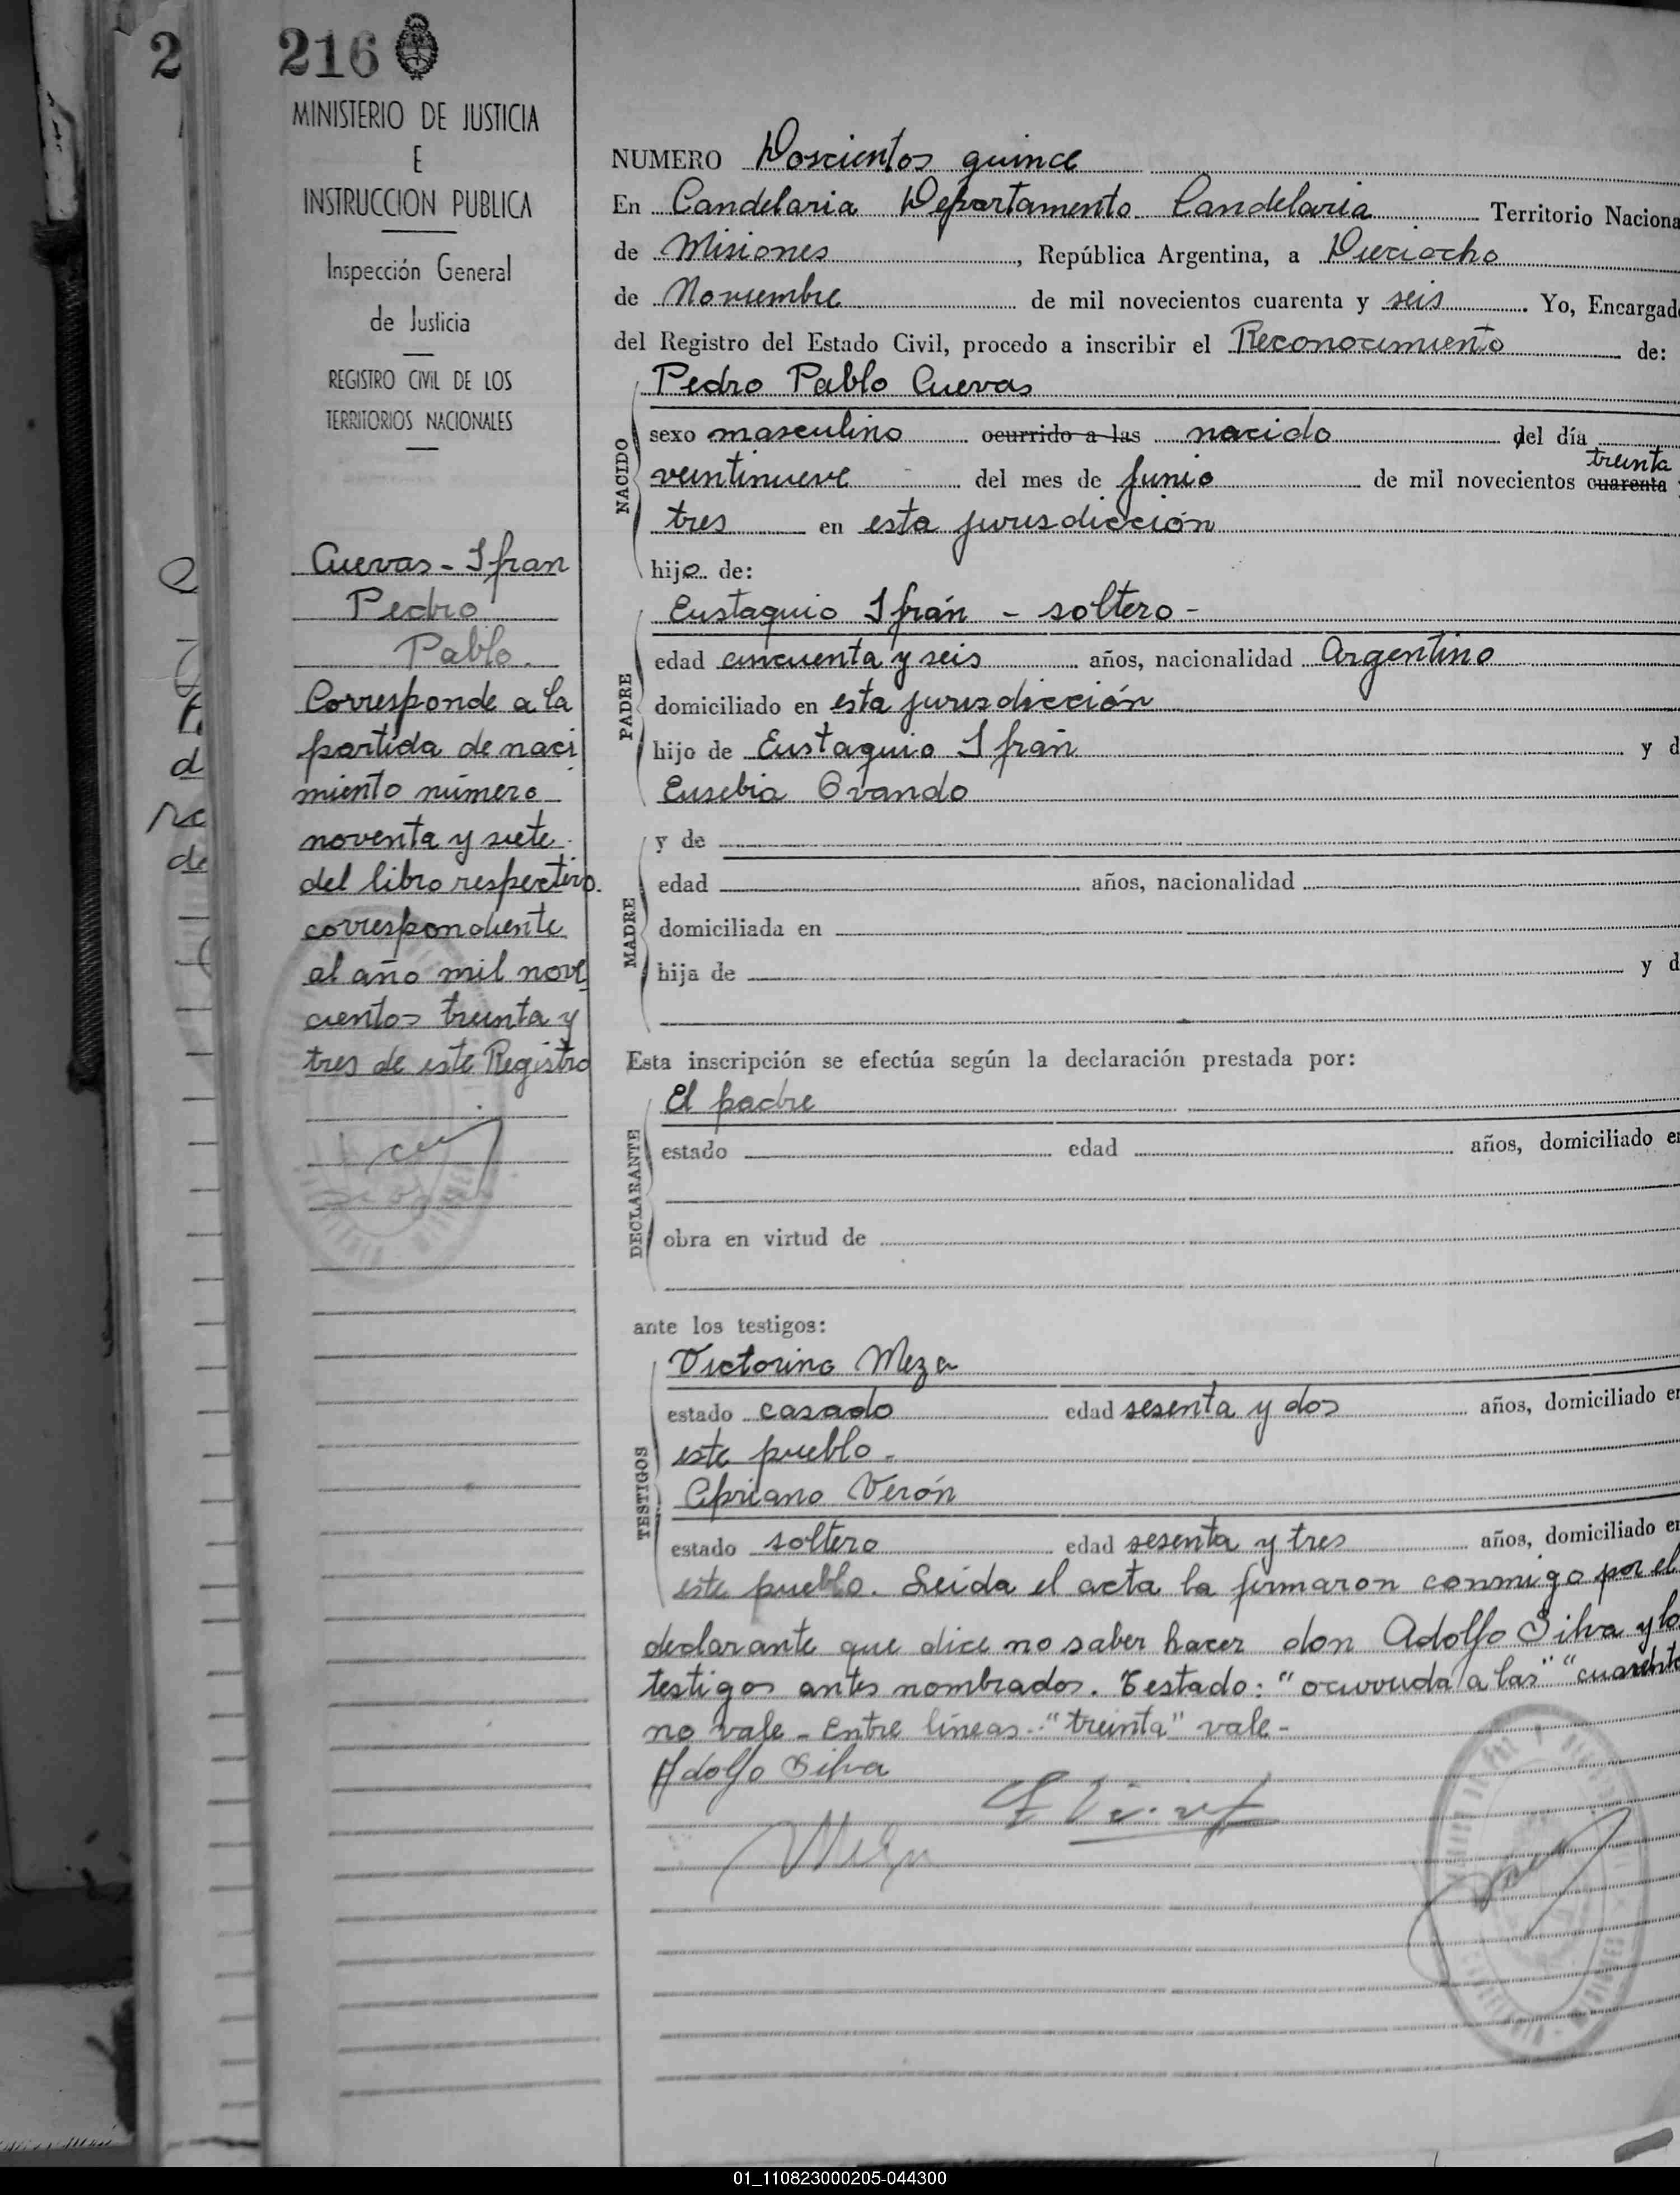 216
MINISTERIO DE JUSTICIA
E
INSTRUCCION PUBLICA
Inspección General
de Justicia
REGISTRO CIVIL DE LOS
TERRITORIOS NACIONALES
Cuevas - Ifran
Pedro
Pablo.
Corresponde a la
partida de naci
miento número
noventa y siete
del libro respectivo.
correspondiente
al año mil nove
cientos treinta y
tres de este Registro
NUMERO Doscientos quince
En Candelaria Departamento Candelaria Territorio Naciona
de Misiones, República Argentina, a Dieciocho
de Noviembre de mil novecientos cuarenta y seis. Yo, Encargad
del Registro del Estado Civil, procedo a inscribir el Reconocimiento de:
NACIDO
Pedro Pablo Cuevas
sexo masculino ocurrido a las nacido del día
treinta
veintinueve del mes de Junio de mil novecientos cuarenta
tres en esta jurisdicción
hijo de:
PADRE
Eustaquio Ifrán - soltero -
edad cincuenta y seis años, nacionalidad Argentino
domiciliado en esta jurisdicción
hijo de Eustaquio Ifrán y d
Eusebia Ovando
MADRE
y de
edad años, nacionalidad
domiciliada en
hija de y d
Esta inscripción se efectúa según la declaración prestada por:
DECLARANTE
El padre
estado edad años, domiciliado en
obra en virtud de
ante los testigos:
TESTIGOS
Victorino Meza
estado casado edad sesenta y dos años, domiciliado en
este pueblo.
Cipriano Verón
estado soltero edad sesenta y tres años, domiciliado en
este pueblo. Leida el acta la firmaron conmigo por el
declarante que dice no saber hacer don Adolfo Silva y lo
testigos antes nombrados. Testado: "ocurrida a las" "cuarenta
no vale - Entre líneas: "treinta" vale -
Adolfo Silva
01_110823000205-044300